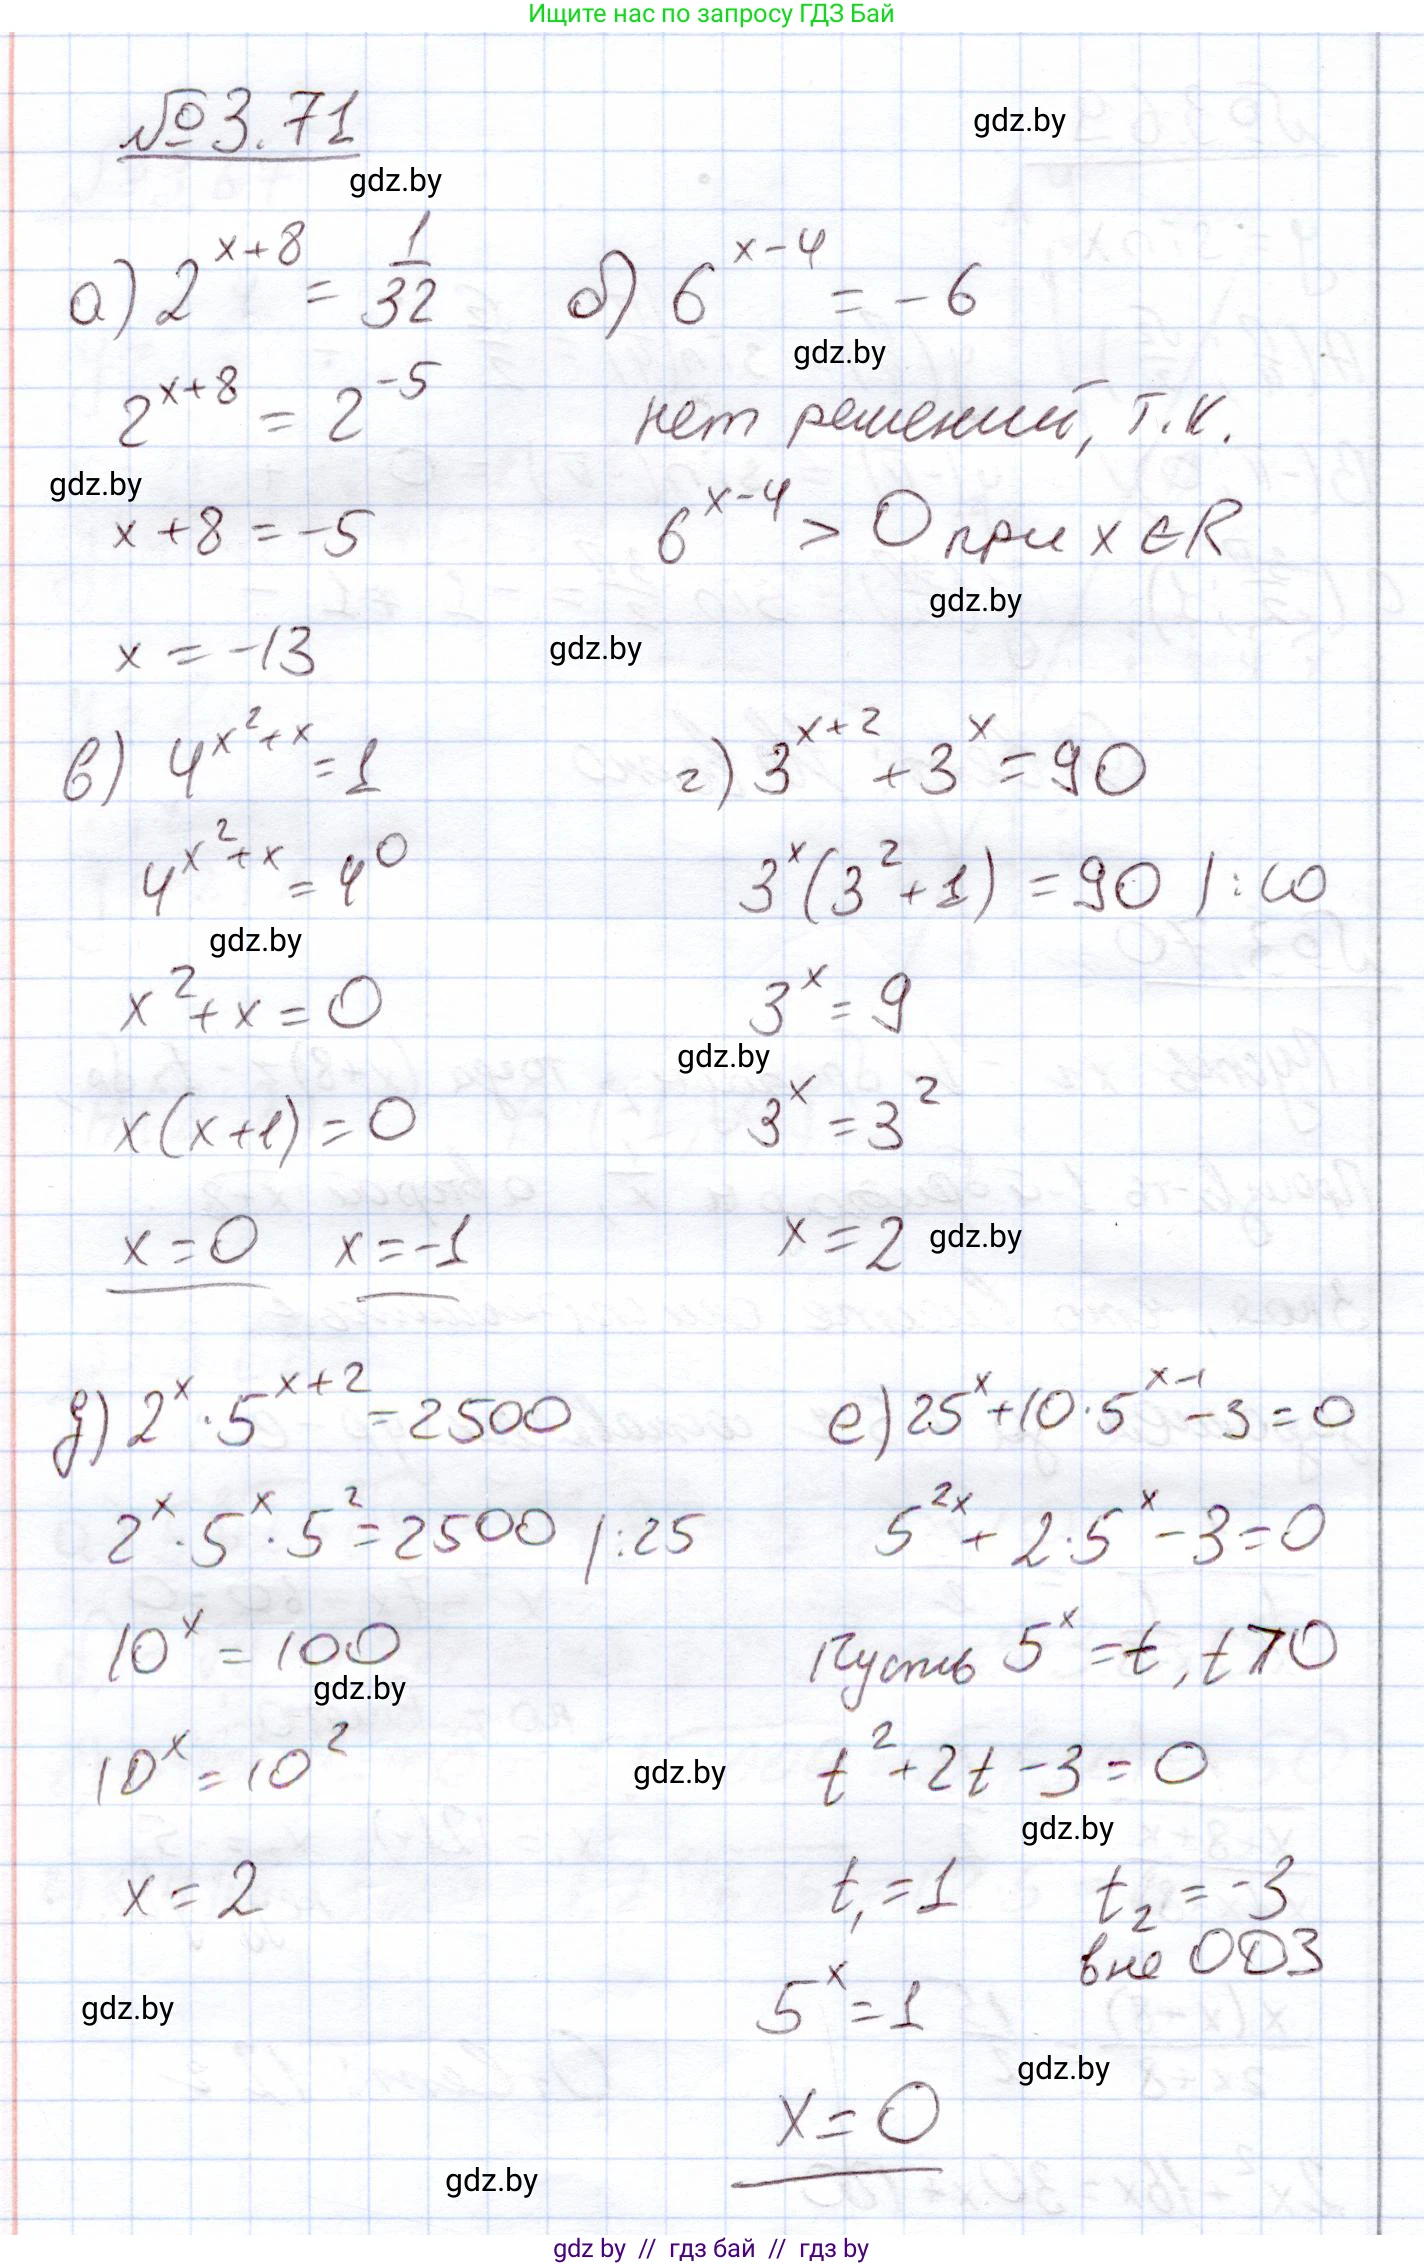 Ищите нас по запросу ГДЗ Бай
№3.71
gdz.by
gdz.by
а) 2^(x+8) = 1/32
2^(x+8) = 2^(-5)
gdz.by
x+8 = -5
x = -13
б) 6^(x-4) = -6
gdz.by
нет решений, т.к.
6^(x-4) > 0 при x ∈ R
gdz.by
gdz.by
в) 4^(x²+x) = 1
4^(x²+x) = 4^0
gdz.by
x²+x = 0
x(x+1) = 0
x = 0 x = -1
г) 3^(x+2) + 3^x = 90
3^x(3²+1) = 90 |:10
3^x = 9
gdz.by
3^x = 3²
x = 2 gdz.by
д) 2^x · 5^(x+2) = 2500
2^x · 5^x · 5² = 2500 |:25
10^x = 100
gdz.by
10^x = 10²
gdz.by
x = 2
gdz.by
е) 25^x + 10·5^(x-1) - 3 = 0
5^(2x) + 2·5^x - 3 = 0
Пусть 5^x = t, t>0
t² + 2t - 3 = 0
gdz.by
t₁ = 1 t₂ = -3
вне ОДЗ
5^x = 1
gdz.by
x = 0
gdz.by
gdz by // гдз бай // гдз by